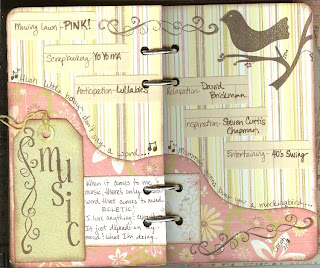 Mowing Lawn - PINK!
Scrapbooking - Yo Yo ma
Anticipation - Lullabies
Hush little baby don't say a word...
music
When it comes to me &
music, there's only one
word that comes to mind
ECLETIC!
I love anything & everything
It just depends on my
mood & what I'm doing...
Relaxation - David
Brickman
Inspiration - Steven Curtis
Chapman
Entertaining - 40's Swing
Mamma's gonna buy you a mockingbird...